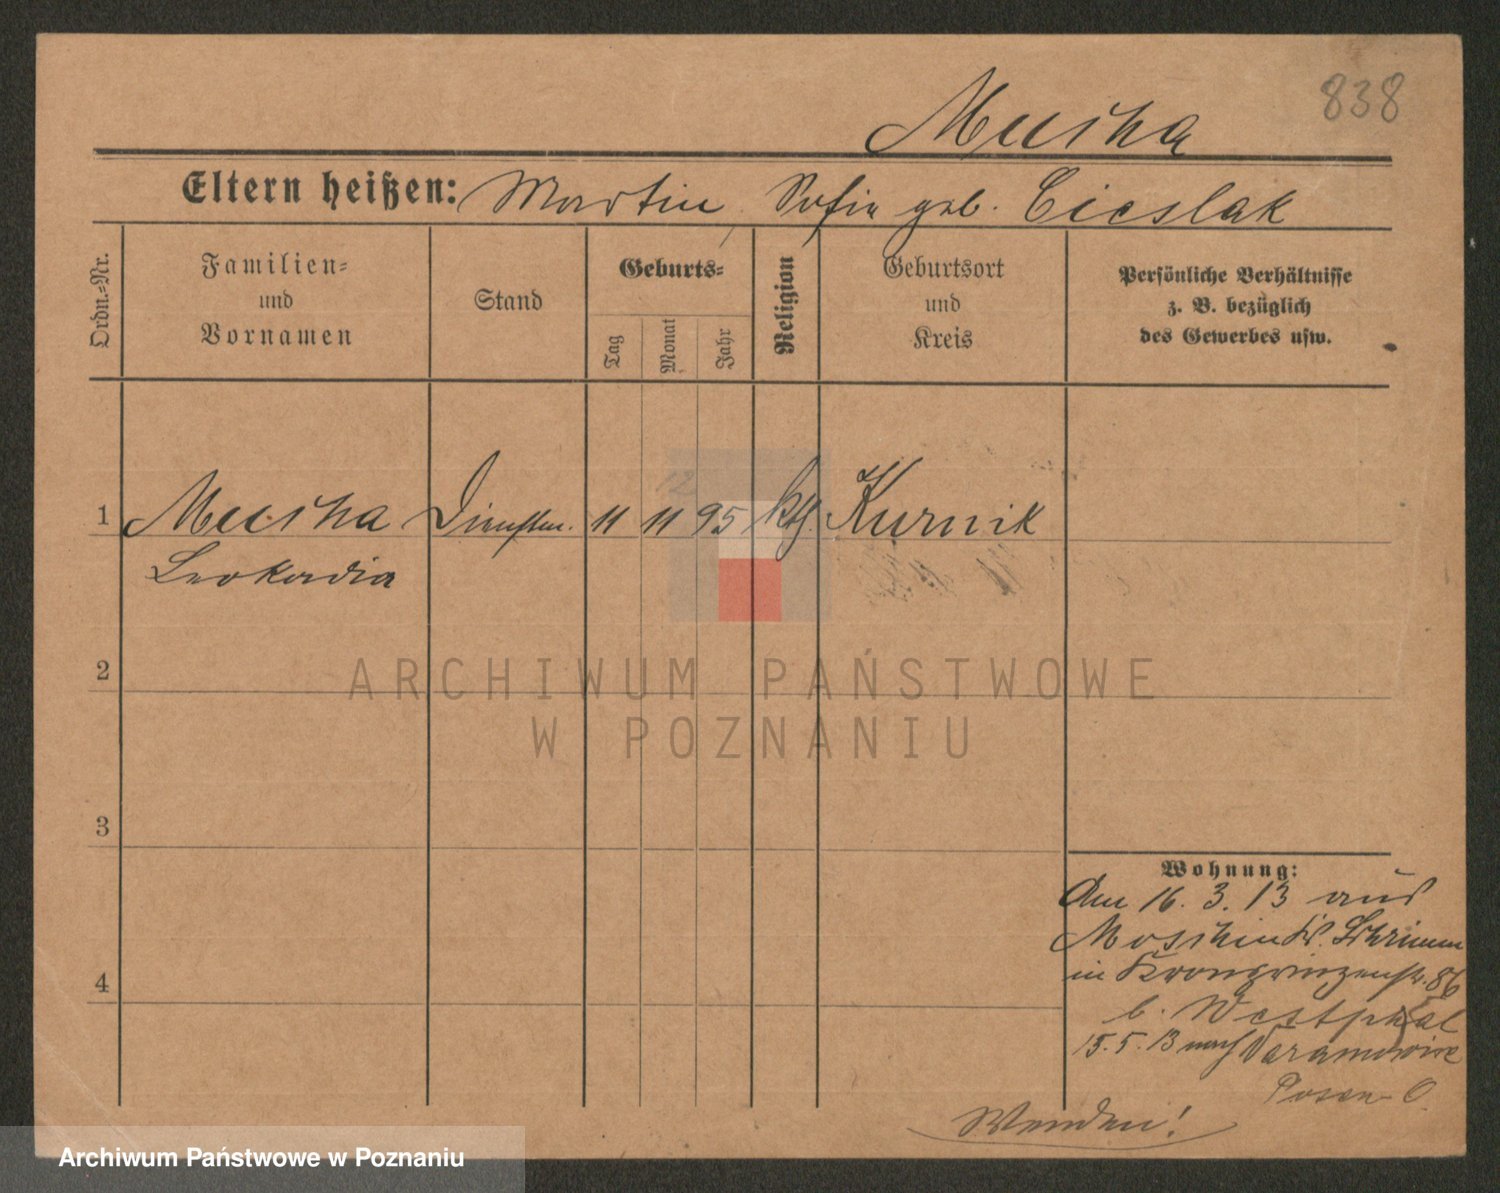 838
Musiha
Eltern heißen: Martin Sofie geb. Cieslak
Ordn.-Nr.
Familien-
und
Vornamen
Stand
Geburts-
Tag
Monat
Jahr
Religion
Geburtsort
und
Kreis
Persönliche Verhältnisse
z. B. bezüglich
des Gewerbes usw.
12
1 Musiha Dienstm. 11 11 95 kth. Kurnik
Leokadia
2
3
4
Wohnung:
Am 16. 3. 13 aus
Moschin Kr. Schrimm
in Kronprinzenstr. 86
b. Westphal
15. 5. 13 nach
Posen O.
Wenden!
ARCHIWUM PAŃSTWOWE
W POZNANIU
Archiwum Państwowe w Poznaniu